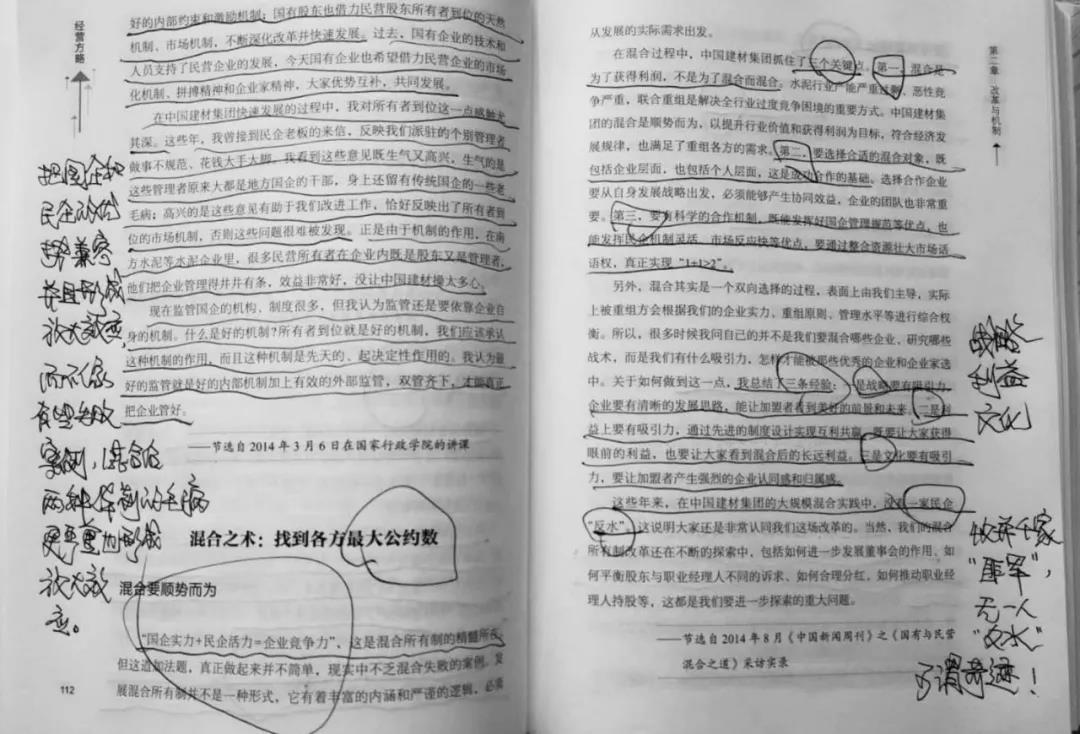 经营方略
好的内部约束和激励机制；国有股东也借力民营股东所有者到位的天然
机制、市场机制，不断深化改革并快速发展。过去，国有企业的技术和
人员支持了民营企业的发展，今天国有企业也希望借力民营企业的市场
化机制、拼搏精神和企业家精神，大家优势互补，共同发展。
在中国建材集团快速发展的过程中，我对所有者到位这一点感触尤
其深。这些年，我曾接到民企老板的来信，反映我们派驻的个别管理者
做事不规范、花钱大手大脚。我看到这些意见既生气又高兴，生气的是
这些管理者原来大都是地方国企的干部，身上还留有传统国企的一些老
毛病；高兴的是这些意见有助于我们改进工作，恰好反映出了所有者到
位的市场机制，否则这些问题很难被发现。正是由于机制的作用，在南
方水泥等水泥企业里，很多民营所有者在企业内既是股东又是管理者，
他们把企业管理得井井有条，效益非常好，没让中国建材操太多心。
现在监管国企的机构、制度很多，但我认为监管还是要依靠企业自
身的机制。什么是好的机制？所有者到位就是好的机制，我们应该承认
这种机制的作用，而且这种机制是先天的、起决定性作用的。我认为最
好的监管就是好的内部机制加上有效的外部监管，双管齐下，才能真正
把企业管好。
——节选自2014年3月6日在国家行政学院的讲课
混合之术：找到各方最大公约数
混合要顺势而为
“国企实力+民企活力=企业竞争力”，这是混合所有制的精髓所在，
但这道加法题，真正做起来并不简单，现实中不乏混合失败的案例。发
展混合所有制并不是一种形式，它有着丰富的内涵和严谨的逻辑，必须
112
把国企和
民企的优
势兼容
并且形成
放大效应，
而不像
有些失败
案例，混合后
两种体制的毛病
更严重的形成
放大效
应。
第二章 改革与机制
从发展的实际需求出发。
在混合过程中，中国建材集团抓住了三个关键点。第一，混合是
为了获得利润，不是为了混合而混合。水泥行业产能严重过剩、恶性竞
争严重，联合重组是解决全行业过度竞争困境的重要方式。中国建材集
团的混合是顺势而为，以提升行业价值和获得利润为目标，符合经济发
展规律，也满足了重组各方的需求。第二，要选择合适的混合对象，既
包括企业层面，也包括个人层面，这是成功合作的基础。选择合作企业
要从自身发展战略出发，必须能够产生协同效益，企业的团队也非常重
要。第三，要有科学的合作机制，既能发挥好国企管理规范等优点，也
能发挥民企机制灵活、市场反应快等优点，要通过整合资源壮大市场话
语权，真正实现“1+1>2”。
另外，混合其实是一个双向选择的过程，表面上由我们主导，实际
上被重组方会根据我们的企业实力、重组原则、管理水平等进行综合权
衡。所以，很多时候我问自己的并不是我们要混合哪些企业、研究哪些
战术，而是我们有什么吸引力，怎样才能被那些优秀的企业和企业家选
中。关于如何做到这一点，我总结了三条经验：一是战略要有吸引力，
企业要有清晰的发展思路，能让加盟者看到美好的前景和未来。二是利
益上要有吸引力，通过先进的制度设计实现互利共赢，既要让大家获得
眼前的利益，也要让大家看到混合后的长远利益。三是文化要有吸引
力，要让加盟者产生强烈的企业认同感和归属感。
这些年来，在中国建材集团的大规模混合实践中，没有一家民企
“反水”，这说明大家还是非常认同我们这场改革的。当然，我们的混合
所有制改革还在不断的探索中，包括如何进一步发展董事会的作用、如
何平衡股东与职业经理人不同的诉求、如何合理分红、如何推动职业经
理人持股等，这都是我们要进一步探索的重大问题。
——节选自2014年8月《中国新闻周刊》之《国有与民营
混合之道》采访实录
战略
利益
文化
千家
无一人
“反水”
可谓奇迹！